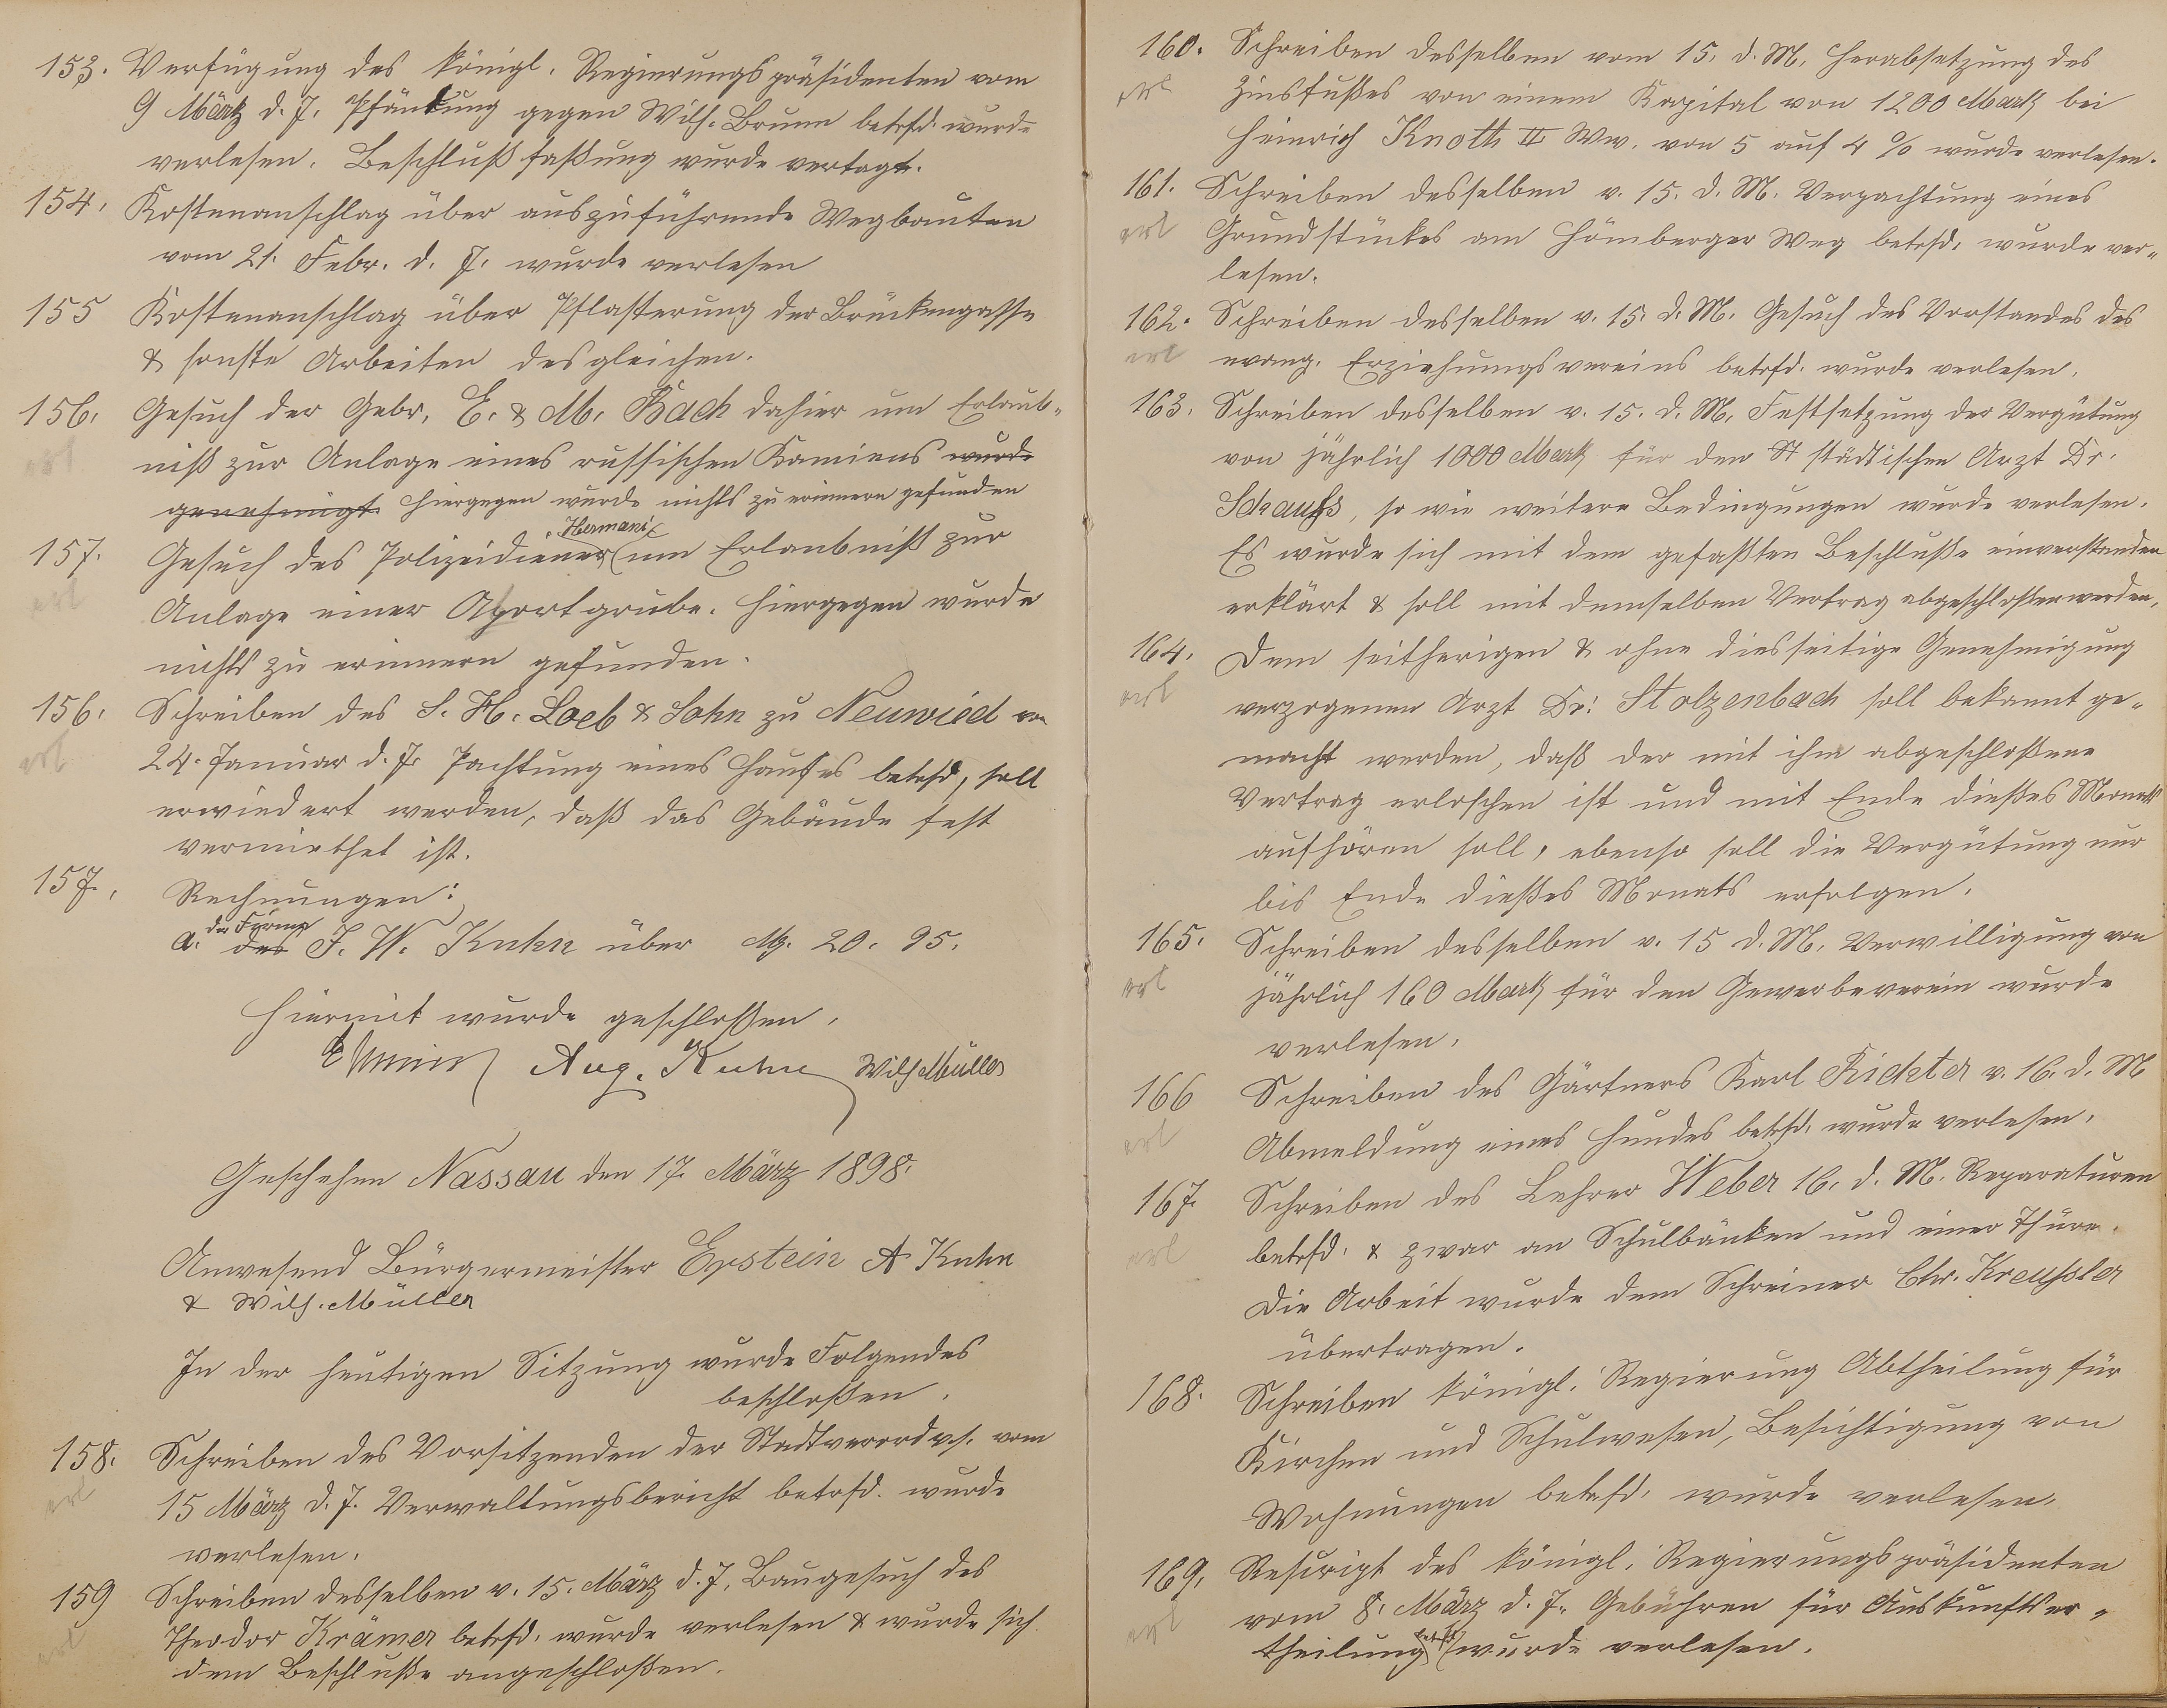 153. Verfügung des königl. Regierungspräsidenten vom
9 März d. J. Pfändung gegen Wilh. Brunn betrfd. wurde
verlesen. Beschlußfaßung wurde vertagt.
154. Kostenanschlag über auszuführende Wegbauten
vom 21. Febr. d. J. wurde verlesen
155 Kostenanschlag über Pflasterung der Brückengasse
& sonste Arbeiten desgleichen.
156. Gesuch der Gebr. E. & M. Bach dahier um Erlaub-
erl
niß zur Anlage eines russischen Kamiens wurde
genehmigt. hiergegen wurde nichts zu erinnern gefunden
Hermani
157. Gesuch des Polizeidiener um Erlaubniß zur
erl
Anlage einer Abortgrube. Hiergegen wurde
nichts zu erinnern gefunden.
156. Schreiben des S. H. Loeb & Sohn zu Neuwied vom
erl
24. Januar d. J. Pachtung eines Hauses betrfd, soll
erwiedert werden, daß das Gebäude fest
vermiethet ist.
157. Rechnungen:
die Firma
a. des J. W. Kuhn über M. 20. 95.
Hiermit wurde geschloßen.
Aug. Kuhn Wilh Müller
Geschehen Nassau den 17. März 1898.
Anwesend Bürgermeister Epstein A Kuhn
& Wilh. Müller
In der heutigen Sitzung wurde Folgendes
beschloßen.
158. Schreiben des Vorsitzenden der Stadtverordvs. vom
erl
15 März d. J. Verwaltungsbericht betrfd. wurde
verlesen.
159 Schreiben desselben v. 15. März d. J. Baugesuch des
erl
Theodor Krämer betrfd. wurde verlesen & wurde sich
dem Beschluße angeschloßen.
160. Schreiben desselben vom 15. d. M. Herabsetzung des
erl
Zinsfußes von einem Kapital von 1200 Mark bei
Heinrich Knoth II Ww. von 5 auf 4 % wurde verlesen.
161. Schreiben desselben v. 15. d. M. Verpachtung eines
erl
Grundstückes am Hömberger Weg betrfd. wurde ver-
lesen.
162. Schreiben desselben v. 15. d. M. Gesuch des Vorstandes des
erl
evang. Erziehungsvereins betrfd. wurde verlesen.
163. Schreiben desselben v. 15. d. M. Festsetzung der Vergütung
von jährlich 1000 Mark für den St städtischen Arzt Dr.
Schauß, so wie weitere Bedingungen wurde verlesen.
Es wurde sich mit dem gefaßten Beschluße einverstanden
erklärt & soll mit demselben Vertrag abgeschloßen werden.
164. Dem seitherigen & ohne diesseitige Genehmigung
erl
verzogenen Arzt Dr: Stolzenbach soll bekannt ge-
macht werden, daß der mit ihm abgeschloßene
Vertrag erloschen ist und mit Ende dießes Monats
aufhören soll, ebenso soll die Vergütung nur
bis Ende dießes Monats erfolgen.
165. Schreiben desselben v. 15 d. M. Verwilligung von
erl
jährlich 160 Mark für den Gewerbeverein wurde
verlesen.
166 Schreiben des Gärtners Karl Richter v. 16. d. M
erl
Abmeldung eines Hundes betrfd. wurde verlesen.
167. Schreiben des Lehrer Weber 16. d. M. Reparaturen
erl
betrfd. & zwar an Schulbänken und einer Thüre.
Die Arbeit wurde dem Schreiner Chr. Kreußler
übertragen.
168. Schreiben königl. Regierung Abtheilung für
Kirchen und Schulwesen, Besichtigung von
Wohnungen betrfd. wurde verlesen.
169. Rescript des königl. Regierungspräsidenten
erl
vom 8. März d. J. Gebühren für Auskunftser-
betrfd
theilung wurde verlesen.